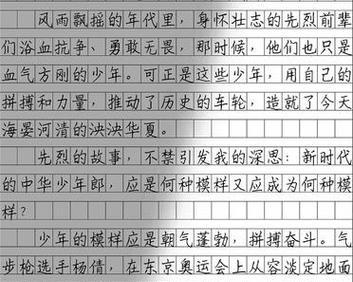 风雨飘摇的年代里，身怀壮志的先烈前辈
们浴血抗争、勇敢无畏，那时候，他们也只是
血气方刚的少年。可正是这些少年，用自己的
拼搏和力量，推动了历史的车轮，造就了今天
海晏河清的泱泱华夏。
先烈的故事，不禁引发我的深思：新时代
的中华少年郎，应是何种模样又应成为何种模
样？
少年的模样应是朝气蓬勃，拼搏奋斗。气
步枪选手杨倩，在东京奥运会上从容淡定地面